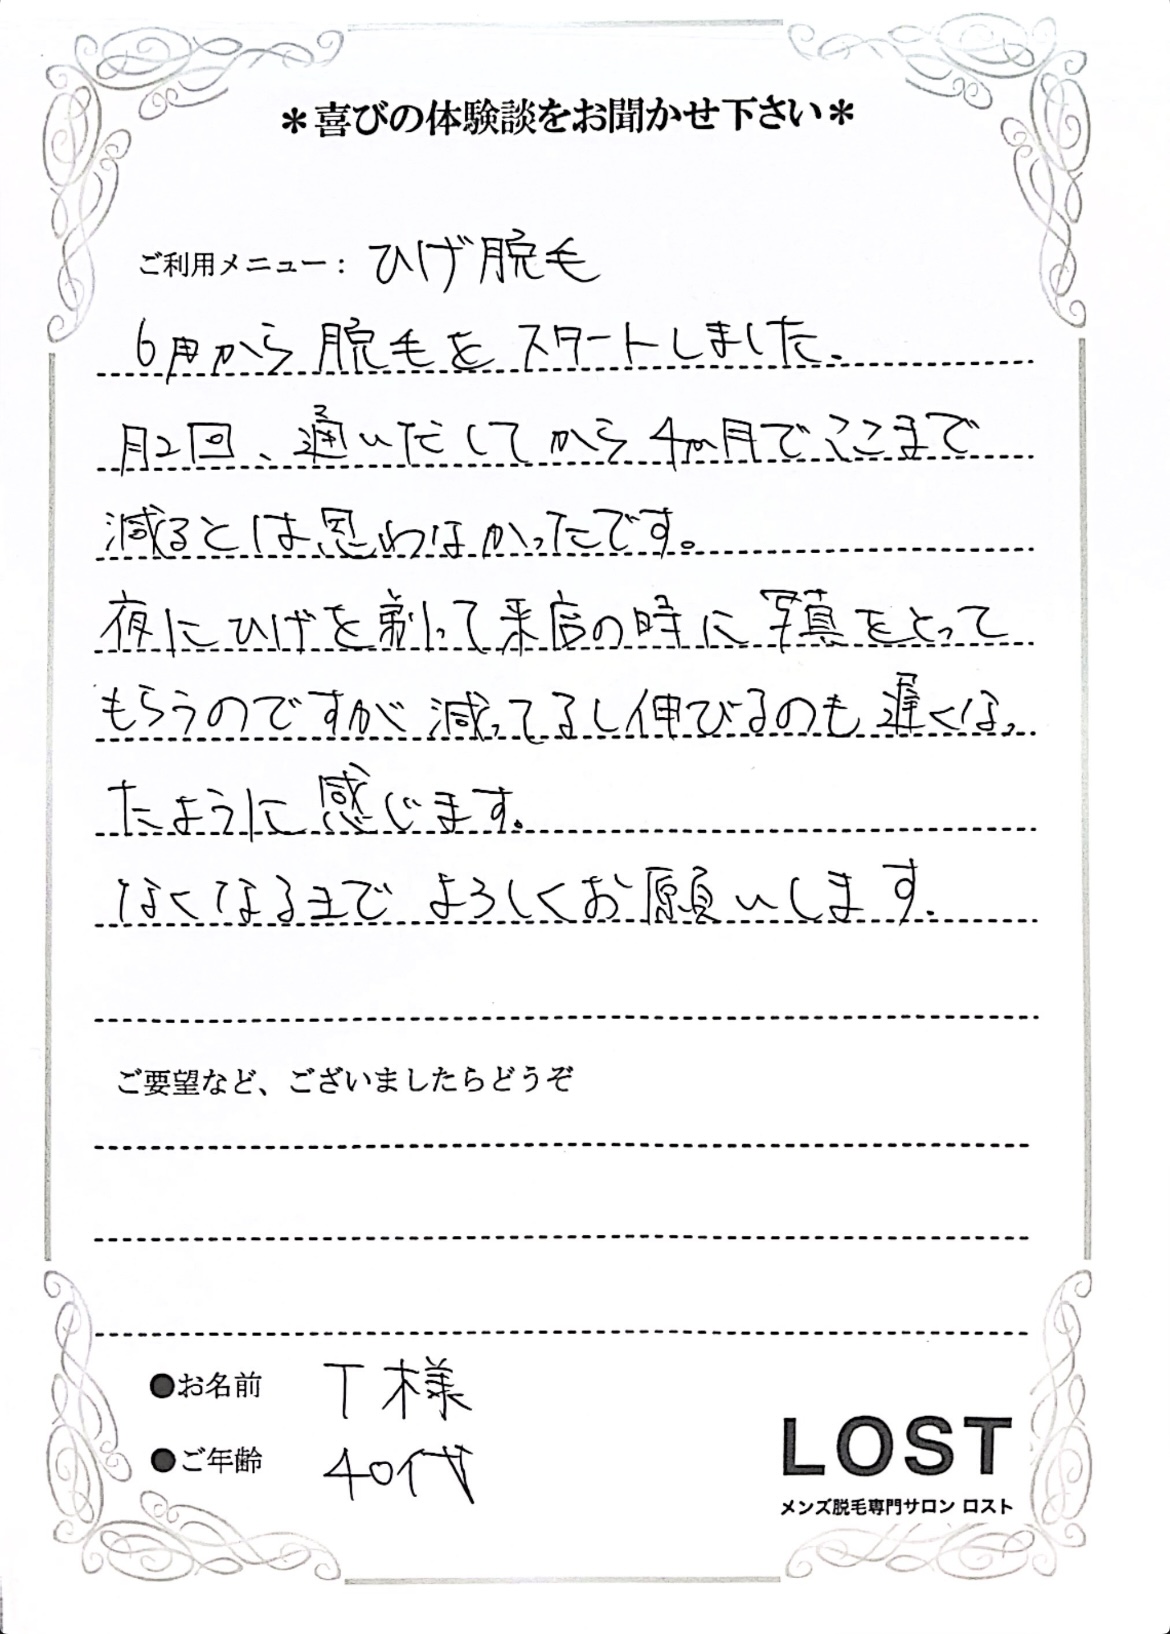 ＊喜びの体験談をお聞かせ下さい＊
ご利用メニュー： ひげ脱毛
6月から脱毛をスタートしました。
月2回、通いだしてから4か月でここまで
減るとは思わなかったです。
夜にひげを剃って来店の時に写真をとって
もらうのですが減ってるし伸びるのも遅くなっ
たように感じます。
なくなるまでよろしくお願いします。
ご要望など、ございましたらどうぞ
●お名前 T様
●ご年齢 40代
LOST
メンズ脱毛専門サロン ロスト